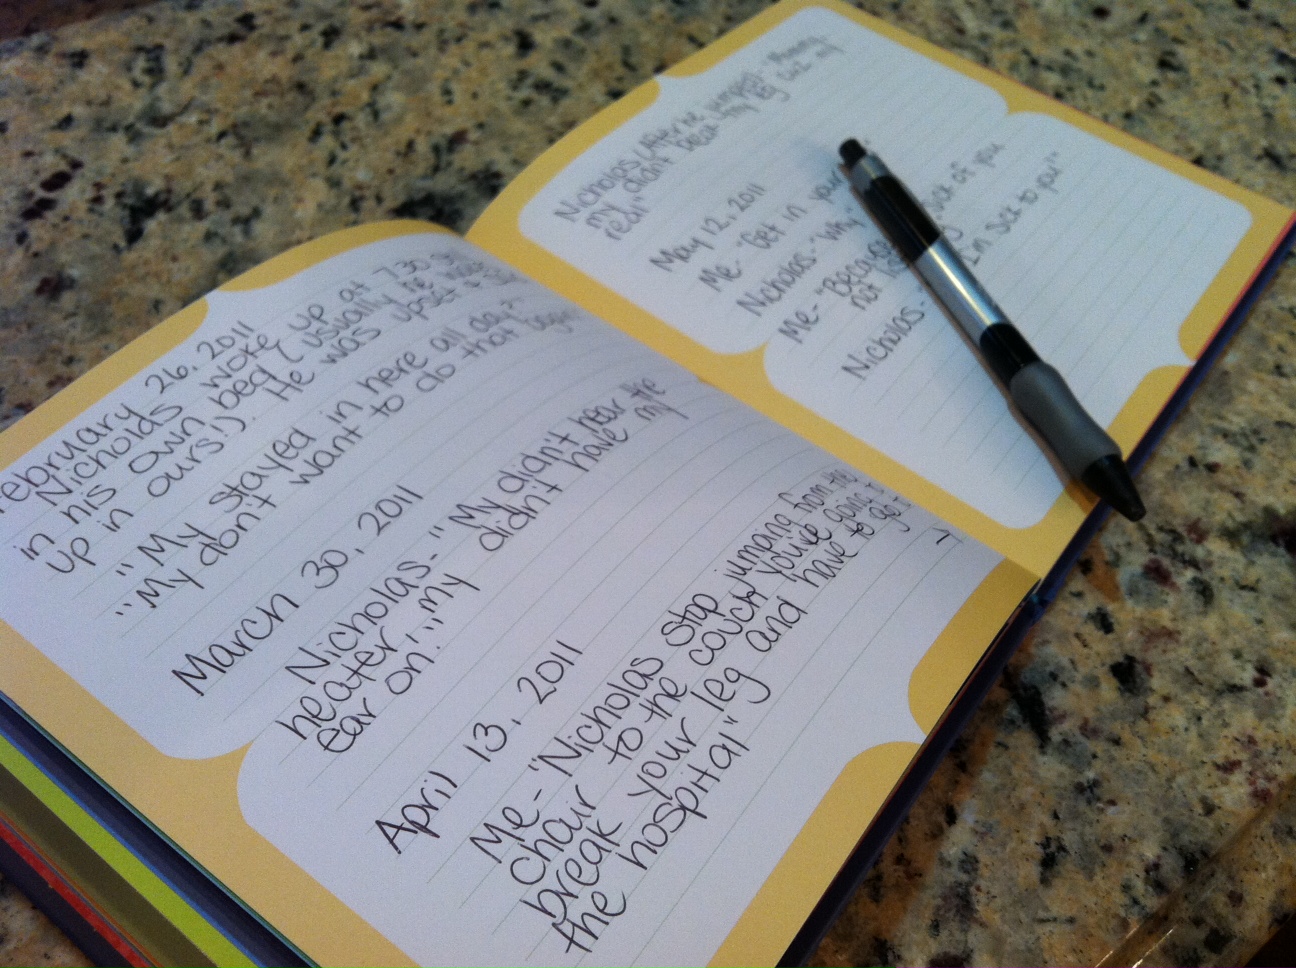 February 26, 2011
Nicholas woke up at 7:30
in his own bed (usually he
up in ours!). He was upset &
"My stayed in here all day,
"My don't want to do that
March 30, 2011
Nicholas-"My didn't hear the
heater" "my didn't have my
ear on."
April 13, 2011
Me-"Nicholas stop jumping from the
chair to the couch you're going
break your leg and have to go
the hospital"
Nicholas (After he jumped)- "Mommy
my didn't break my leg
real"
May 12, 2011
Me-"Get in your
Nicholas-"Why"
Me-"Because sick of you
not
Nicholas- I'm sick to you!"